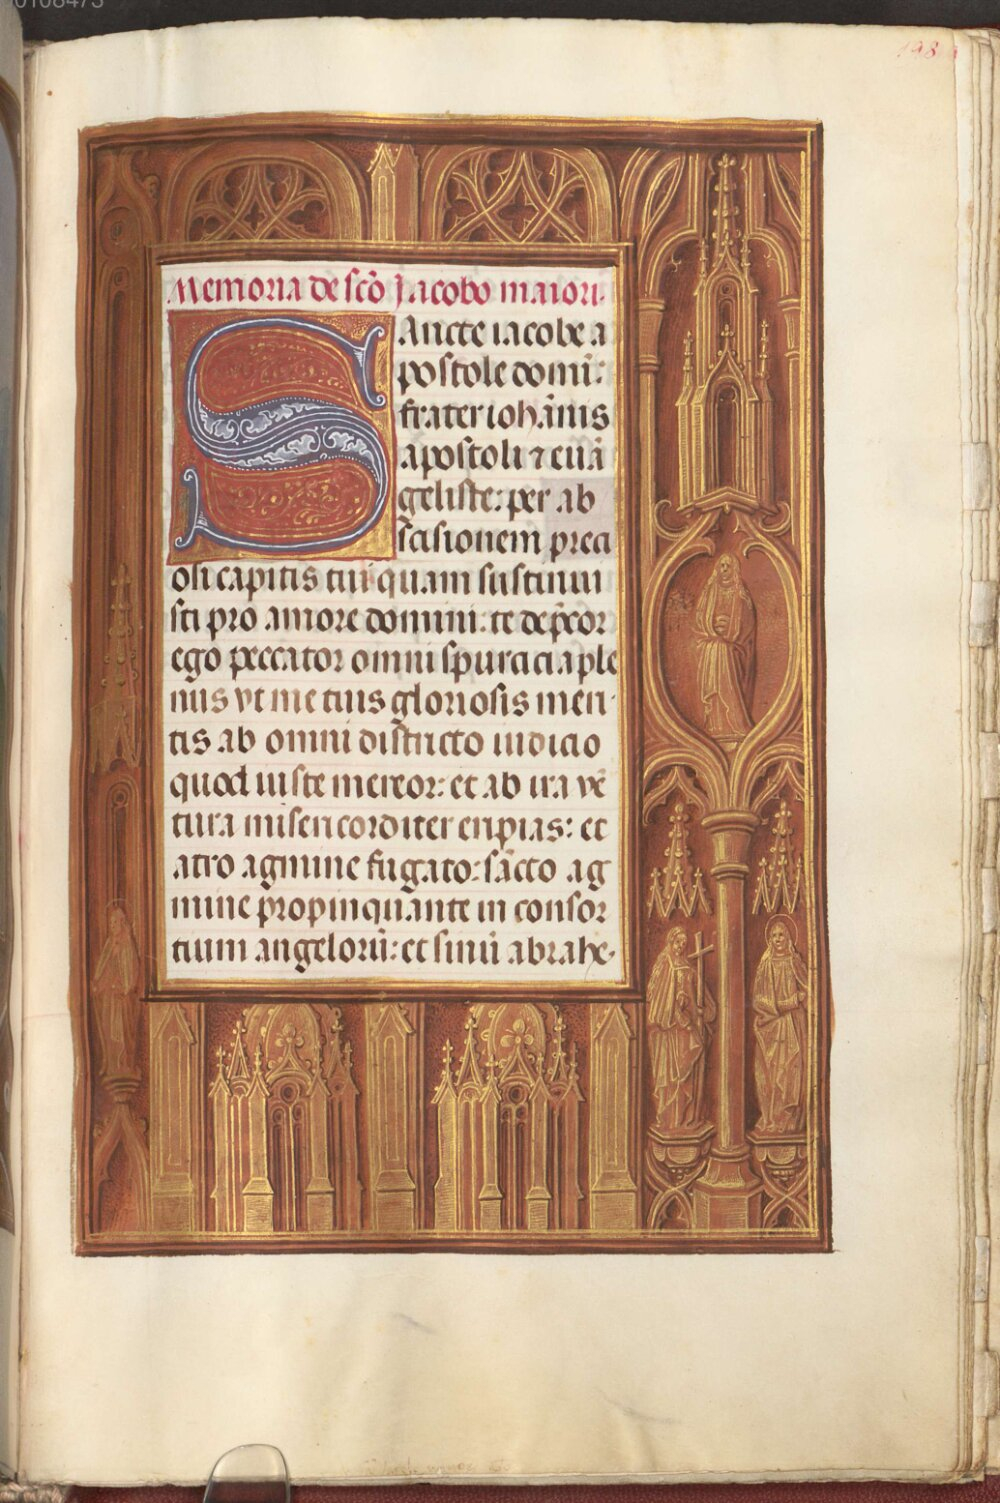 Memoria de scō Jacobo maiori.
Sancte iacobe a
postole domī:
frater iohānis
apostoli ⁊ euā
geliste: per ab
scisionem preci
osi capitis tui quam sustinui
sti pro amore domini: te dep̄cor
ego peccator omni spuracia ple
nus vt me tuis gloriosis meri
tis ab omni districto iudicio
quod iuste mereor: et ab ira vē
tura misericorditer eripias: et
atro agmine fugato: sācto ag
mine propinquante in consor
tium angelorū: et sinū abrahe.